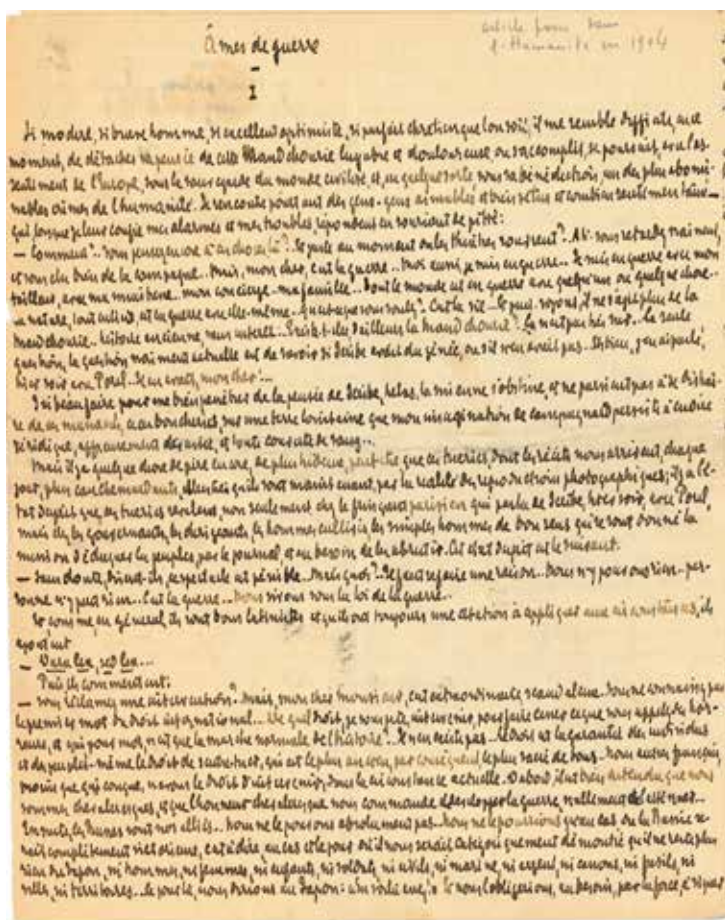 Âmes de guerre
article pour dans
l'Humanité en 1904
I
Si modéré, si brave homme, si excellent optimiste, si parfait chrétien que l'on soit, il me semble difficile, en ce
moment, de détacher sa pensée de cette Mandchourie lugubre et douloureuse où s'accomplit, se poursuit, avec l'as-
sentiment de l'Europe, sous la sauvegarde du monde civilisé et, en quelque sorte sous sa bénédiction, un des plus abomi-
nables crimes de l'humanité. Je rencontre pourtant des gens – gens aimables et bien vêtus et
qui lorsque je leur confie mes alarmes et mes troubles, répondent en souriant de pitié :
– Comment ?.. vous pensez encore à ? au moment où les théâtres rouvrent ?.. Ah ! vous retardez vraiment,
et vous de la campagne.. Mais, mon cher, c'est la guerre.. Moi aussi, je suis en guerre.. Je suis en guerre avec mon
tailleur, avec ma mon concierge.. ma famille.. Tout le monde est en guerre avec quelqu'un ou quelque chose..
La nature, tout est en guerre avec elle-même.. Qu'est-ce que vous voulez ?.. C'est la vie.. Et puis, voyons, il ne s'agit plus de la
Mandchourie.. histoire ancienne, sans intérêt.. Existe-t-elle d'ailleurs la Mandchourie ?.. Ça n'est pas très sûr.. La seule
question, la question vraiment actuelle est de savoir si Scribe avait du génie, ou s'il n'en avait pas.. Eh bien, j'en ai parlé,
hier soir avec Poul.. Il en avait, mon cher !...
J'ai beau faire pour me bien pénétrer de la pensée de Scribe, hélas, la mienne s'obstine, et ne parvient pas à se distrai-
re de ces massacres, ces boucheries, sur une terre lointaine que mon imagination de campagnard persiste à croire
véridique, affreusement dévastée, et toute couverte de sang...
Mais il y a quelque chose de pire encore, de plus hideux, peut-être que ces tueries, dont les récits nous arrivent, chaque
jour, plus cauchemardants, attestés qu'ils sont maintenant, par la réalité des reproductions photographiques ; il y a l'é-
tat d'esprit que ces tueries révèlent, non seulement chez le fringant parisien qui parla de Scribe, hier soir, avec Poul,
mais chez les gouvernants, les dirigeants, les hommes et les simples hommes de bon sens qui se sont donné la
mission d'éduquer les peuples par le journal, et au besoin de les abrutir. Cet état d'esprit est le suivant.
– Sans doute, disent-ils, ce spectacle est pénible.. Mais quoi ?.. Il faut se faire une raison.. Nous n'y pouvons rien.. per-
sonne n'y peut rien.. C'est la guerre.. Nous vivons sous la loi de la guerre..
Et comme, en général, ils sont tous latinistes et qu'ils ont toujours une citation à appliquer aux circonstances, ils
ajoutent
– Dura lex, sed lex...
Puis ils commentent :
– Vous réclamez une intervention ?.. Mais, mon cher monsieur, c'est extraordinaire Vous ne connaissez pas
le premier mot du droit international... De quel droit, je vous prie, intervenir, pour faire cesser ce que vous appelez des hor-
reurs, et qui pour moi, n'est que la marche normale de l'histoire ?.. Il n'en existe pas.. Le droit est la garantie des individus
et des peuples – même le droit de s'entretuer, qui est le plus ancien, par conséquent le plus sacré de tous.. Nous autres français,
moins que quiconque, n'avons le droit d'intervenir, dans la circonstance actuelle. D'abord, il est bien entendu que nous
sommes chevaleresques, et que l'honneur chevaleresque nous commande la guerre, nullement
Ensuite, les Russes sont nos alliés.. Nous ne le pouvons absolument pas.. Nous ne le pourrions qu'au cas où la Russie se-
rait complètement victorieuse, c'est-à-dire, au cas où il nous serait catégoriquement démontré qu'il ne reste plus
rien du Japon, ni hommes, ni femmes, ni enfants, ni soldats, ni civils, ni marine, ni argent, ni canons, ni fusils, ni
villes, ni territoires.. Ce jour-là, nous dirions au Japon : « En voilà assez ! » Et nous l'obligerions, au besoin, par la force, à